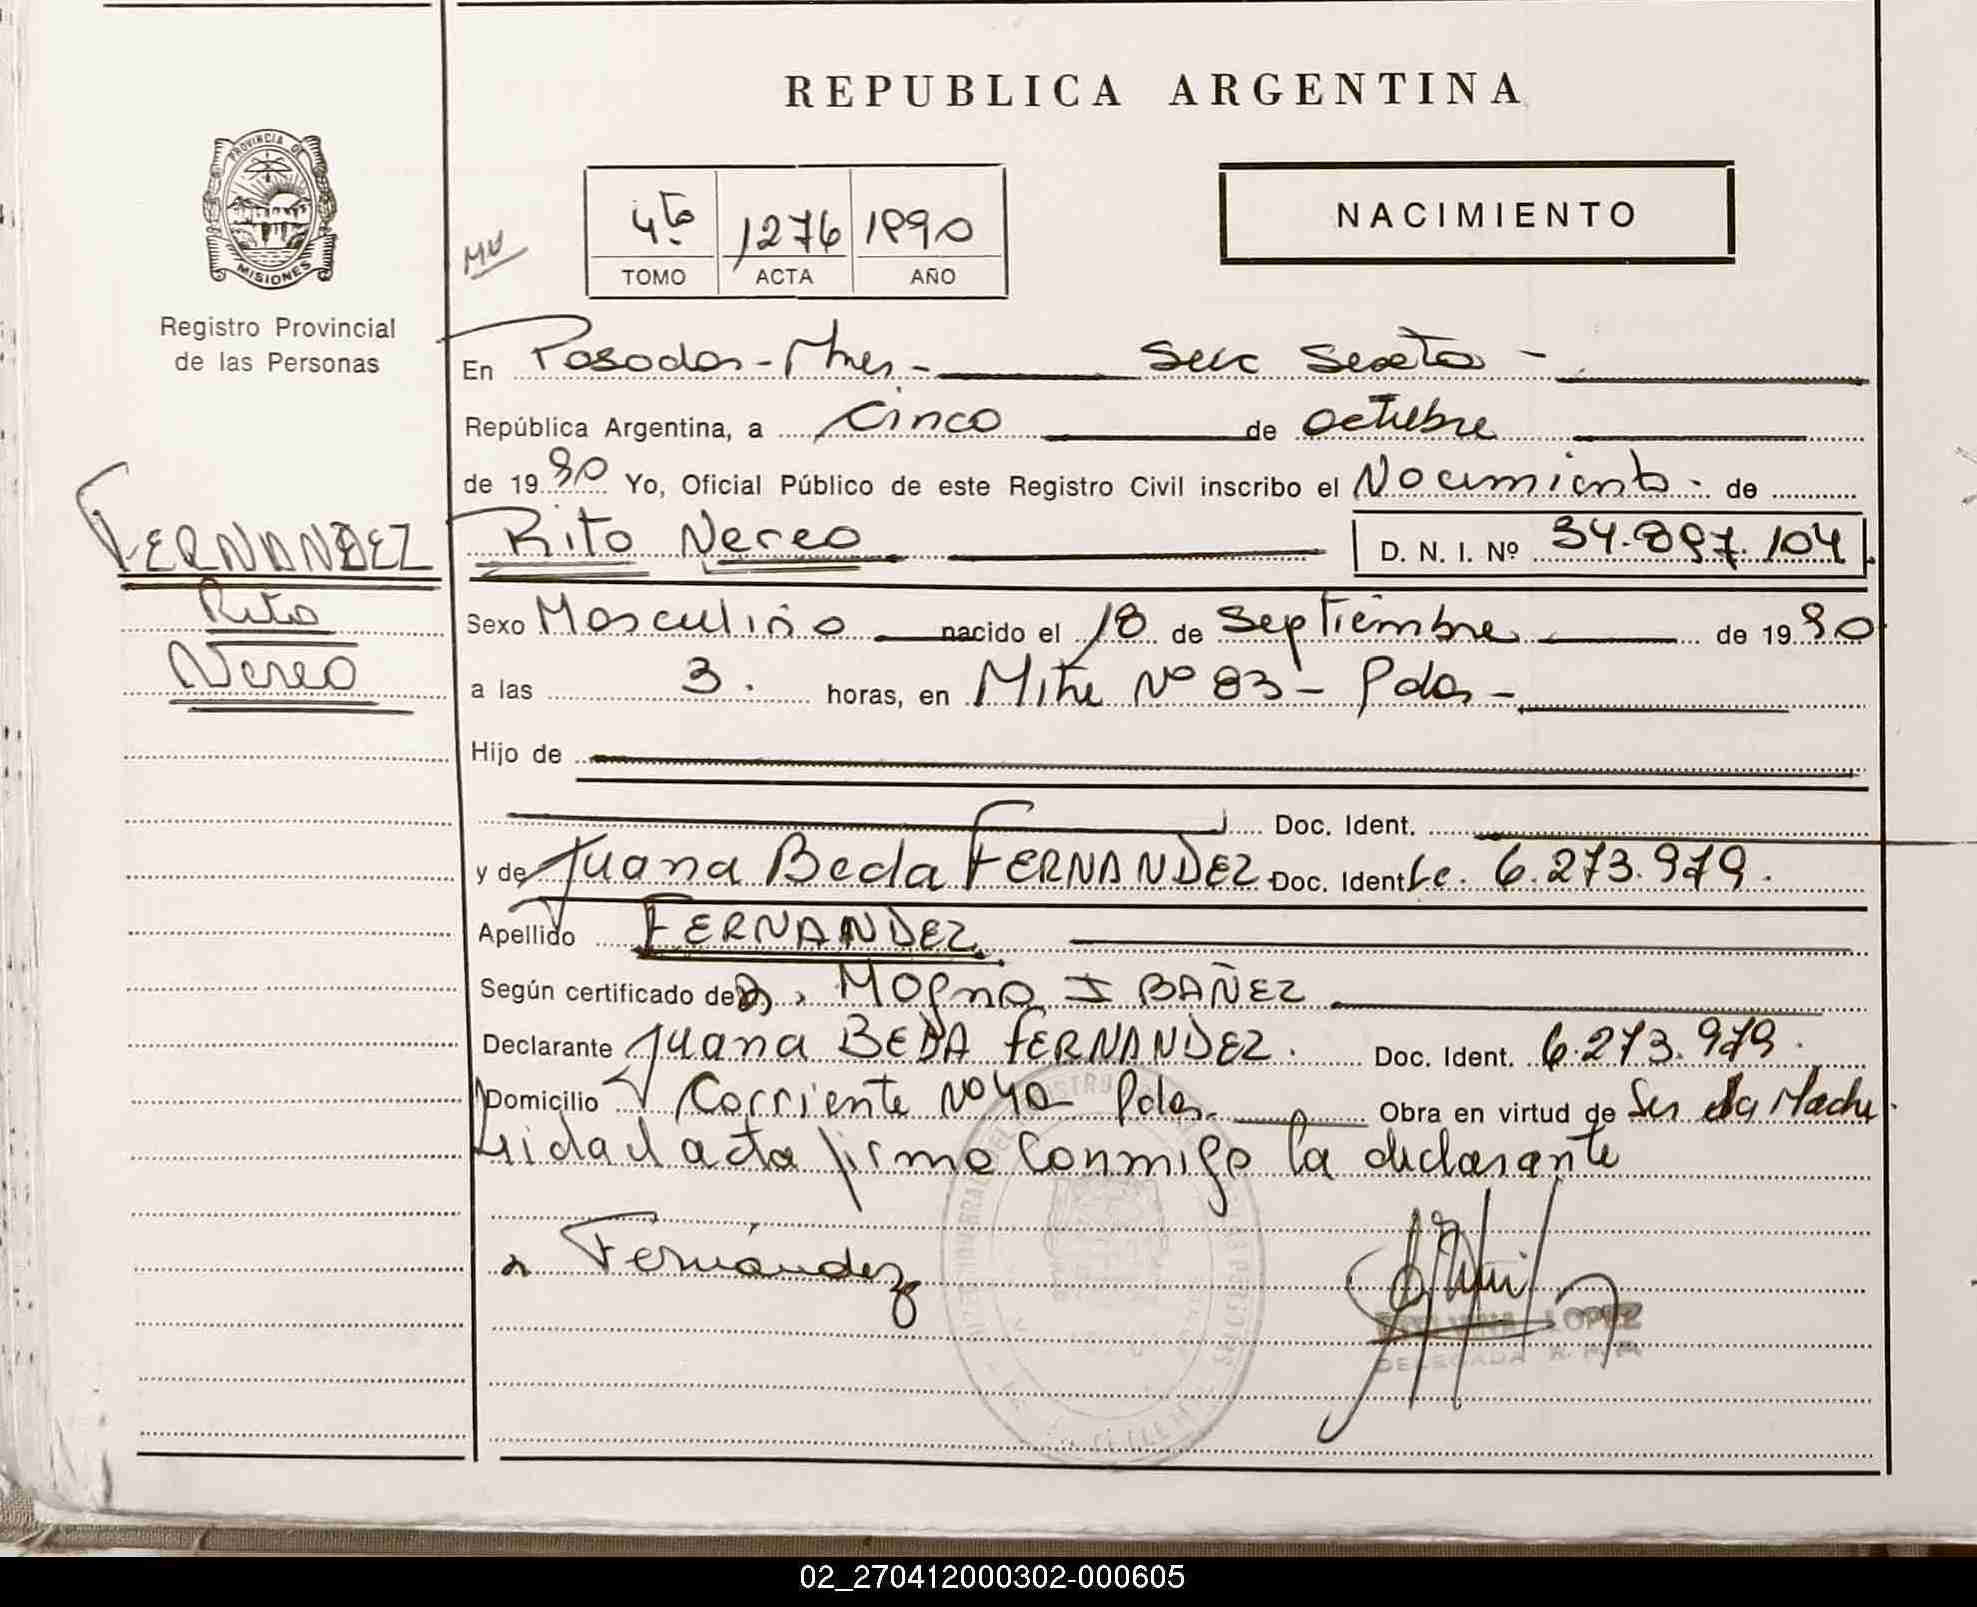 REPUBLICA ARGENTINA
PROVINCIA DE
MISIONES
Registro Provincial
de las Personas
4to 1276 1990
TOMO ACTA AÑO
NACIMIENTO
En Posadas - Mnes - Secc Sexta -
República Argentina, a cinco de octubre
de 1990 Yo, Oficial Público de este Registro Civil inscribo el Nacimiento - de
FERNANDEZ
Rito
Nereo
Rito Nereo D. N. I. Nº 34.897.104
Sexo Masculino nacido el 18 de Septiembre de 1990
a las 3. horas, en Mitre Nº 83 - Pdas -
Hijo de
Doc. Ident.
y de Juana Beda FERNANDEZ Doc. Ident Lc. 6.273.979.
Apellido FERNANDEZ
Según certificado de IBAÑEZ
Declarante Juana BEDA FERNANDEZ. Doc. Ident. 6.273.979.
Domicilio Corriente Nº 40 Pdas. Obra en virtud de Ser la Madre.
Leida el acta firma conmigo la declarante
Fernández
LOPEZ
DELEGADA
02_270412000302-000605